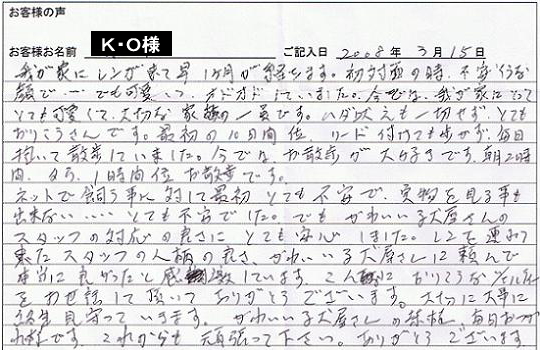 お客様の声
お客様お名前 K・O様 ご記入日 2008年 3月15日
我が家にレンが来て早1ヶ月が経ちます。初対面の時、不安そうな
顔で…でも可愛いく、オドオドしていました。今では、我が家にとって
とても可愛くて、大切な家族の一員です。ムダ吠えも一切せず、とても
おりこうさんです。最初の10日間位、リード付けても歩かず、毎日
抱いて散歩していました。今では、お散歩が大好きです。朝2時
間、夕方、1時間位お散歩です。
ネットで飼う事に対して最初とても不安で、実物を見る事も
出来ない……とても不安でした。でもかわいい子犬屋さんの
スタッフの対応の良さにとても安心しました。レンを連れて
来たスタッフの人柄の良さ、かわいい子犬屋さんに頼んで
本当に良かったと感激しています。こんなにおりこうな
をお世話して頂いてありがとうございます。大切に大事に
一生見守っていきます。かわいい子犬屋さんの 毎日おつか
れ様です。これからも頑張って下さい。ありがとうございます